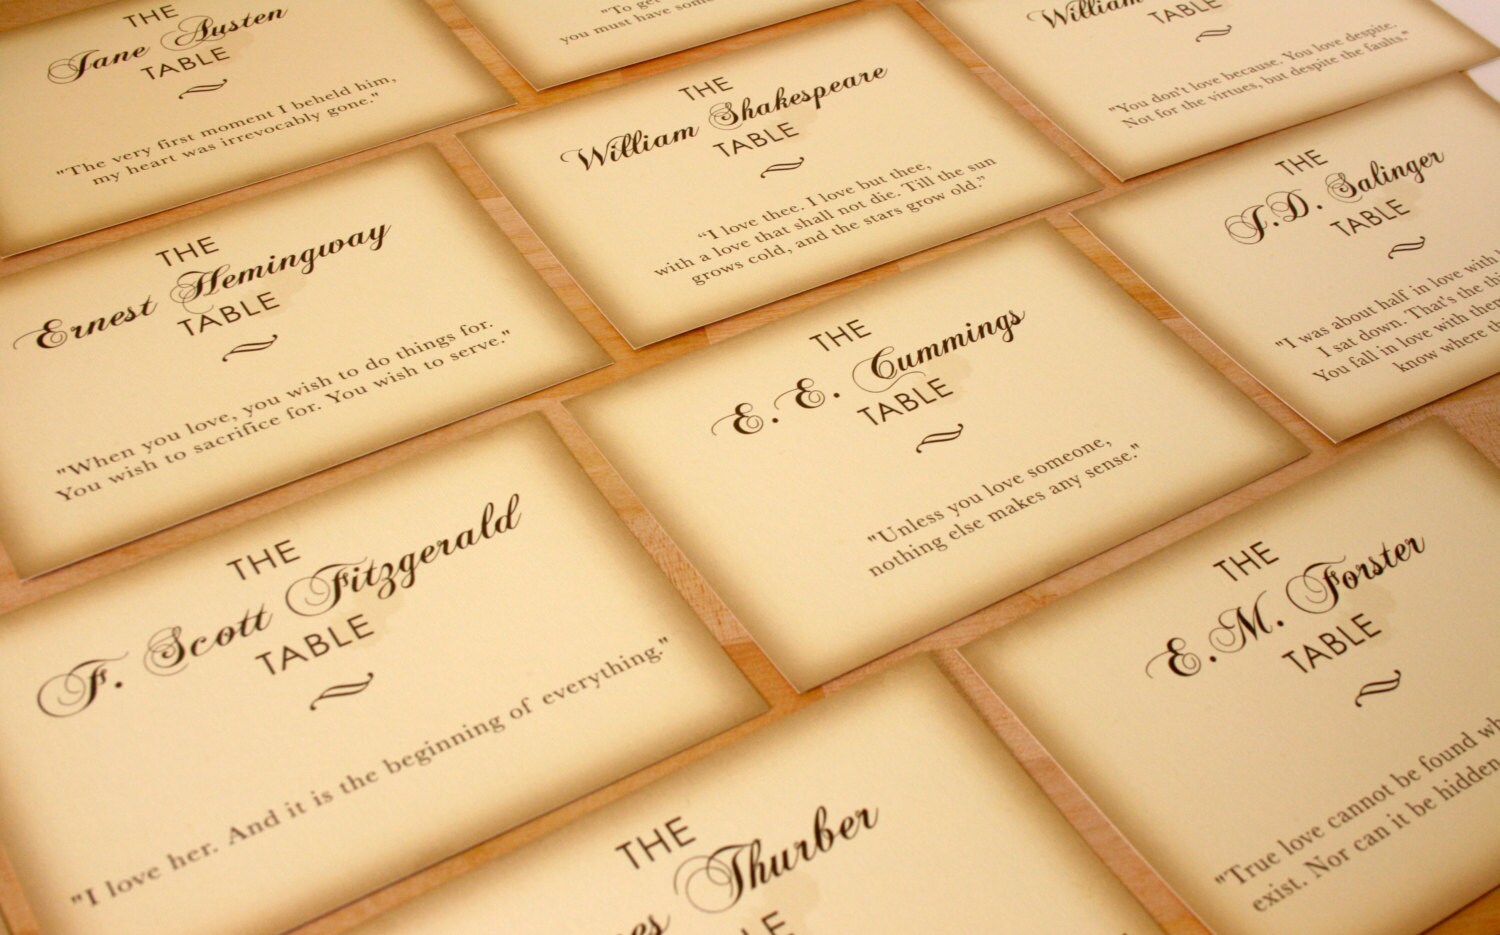 THE
Jane Austen
TABLE
"The very first moment I beheld him,
my heart was irrevocably gone."
"To get
you must have some
THE
William Shakespeare
TABLE
“I love thee. I love but thee,
with a love that shall not die. Till the sun
grows cold, and the stars grow old.”
William
TABLE
"You don't love because. You love despite.
Not for the virtues, but despite the faults."
THE
Ernest Hemingway
TABLE
"When you love, you wish to do things for.
You wish to sacrifice for. You wish to serve."
THE
E. E. Cummings
TABLE
"Unless you love someone,
nothing else makes any sense."
THE
J.D. Salinger
TABLE
"I was about half in love with
I sat down. That's the
You fall in love with
know where
THE
F. Scott Fitzgerald
TABLE
"I love her. And it is the beginning of everything."
THE
E.M. Forster
TABLE
"True love cannot be found
exist. Nor can it be hidden
THE
Thurber
TABLE